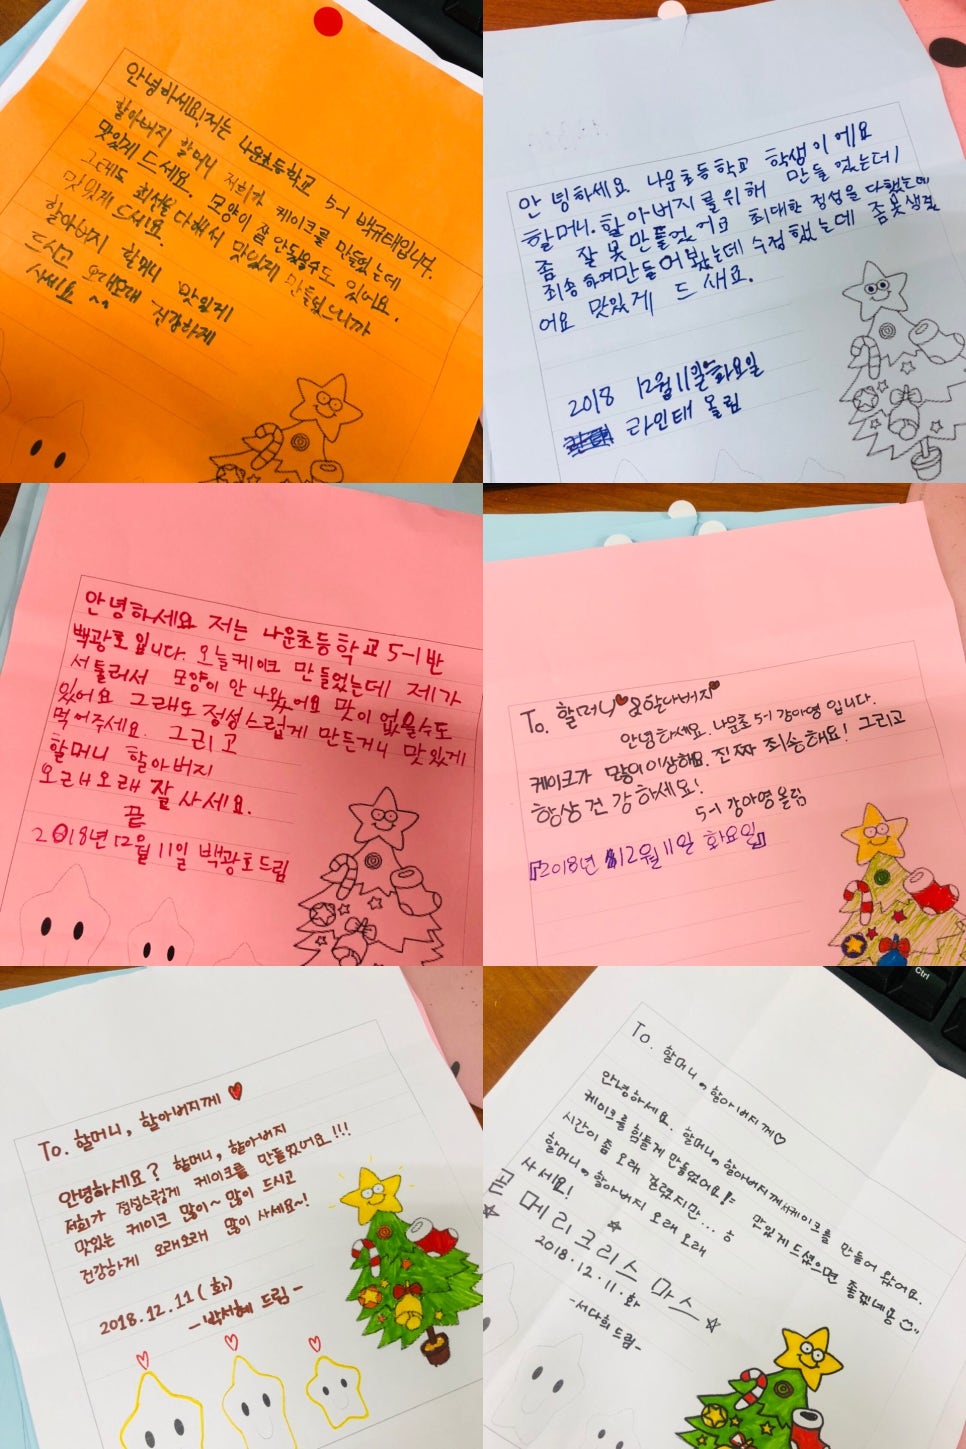 안녕하세요! 저는 나운초등학교 5-1 백규태입니다.
할아버지 할머니 저희가 케이크를 만들었는데
맛있게 드세요. 모양이 잘 안됬을수도 있어요.
그래도 최선을 다해서 맛있게 만들었으니까
맛있게 드세요.
할아버지 할머니 맛있게
드시고 오래오래 건강하게
사세요 ^^
안녕하세요 나운초등학교 학생이에요
할머니.할아버지를위해 만들었는데
좀 잘 못만들었어요 최대한 정성을 다했는데
죄송하여만들어봤는데 수정했는데 좀못생겼
어요 맛있게 드새요.
2018 12월11일 화요일
라인태 올림
안녕하세요 저는 나운초등학교 5-1반
백광호입니다. 오늘케이크 만들었는데 제가
서툴러서 모양이 안 나왔어요 맛이 없을수도
있어요 그래도 정성스럽게 만든거니 맛있게
먹어주세요. 그리고
할머니 할아버지
오래오래 잘 사세요.
끝
2018년 12월 11일 백광호드림
To. 할머니♥&할아버지♥
안녕하세요. 나운초 5-1 강아영 입니다.
케이크가 많이이상해요. 진짜 죄송해요! 그리고
항상 건강하세요!
5-1 강아영올림
『2018년 12월 11일 화요일』
To. 할머니, 할아버지께 ♥
안녕하세요? 할머니, 할아버지
저희가 정성스럽게 케이크를 만들었어요!!!
맛있는 케이크 많이~ 많이 드시고
건강하게 오래오래 많이 사세요~!
2018.12.11(화)
-박서혜 드림-
To. 할머니, 할아버지께♡
안녕하세요. 할머니, 할아버지께서케이크를 만들어 왔어요.
케이크를 힘들게 만들었어요! 맛있게 드셨으면 좋겠네용
시간이 좀 오래 걸렸지만...ㅎ
할머니, 할아버지 오래 오래
사세요!
☆ 메리크리스마스 ☆
2018.12.11.화
-서다희드림-
Ctrl